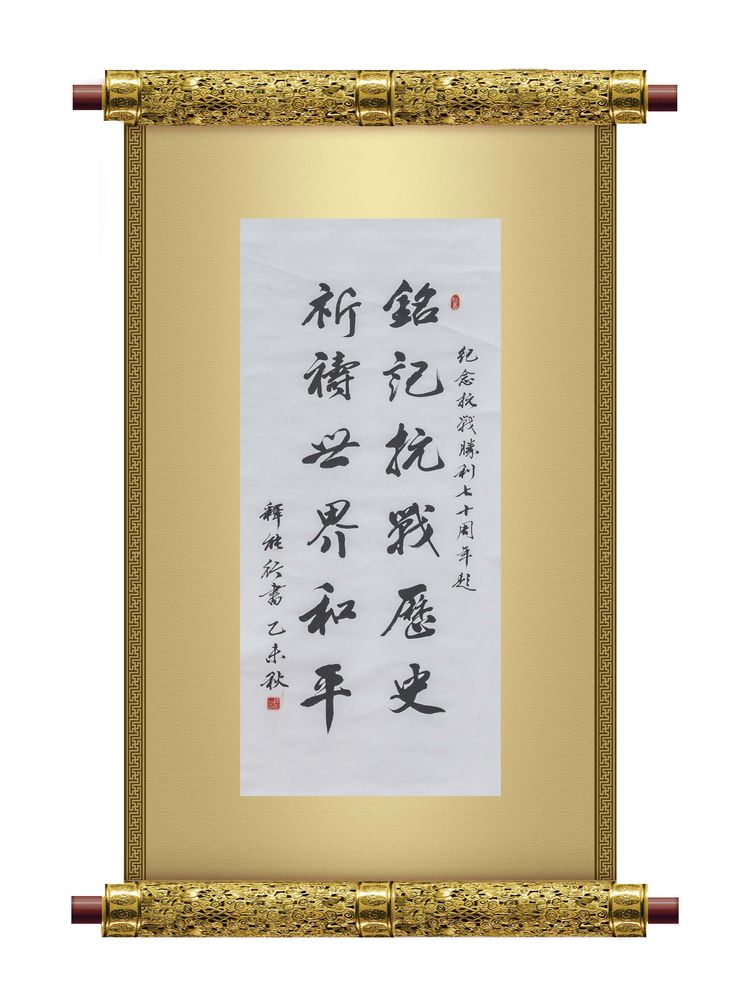 紀念抗戰勝利七十周年題
銘記抗戰歷史
祈禱世界和平
釋能行書乙未秋